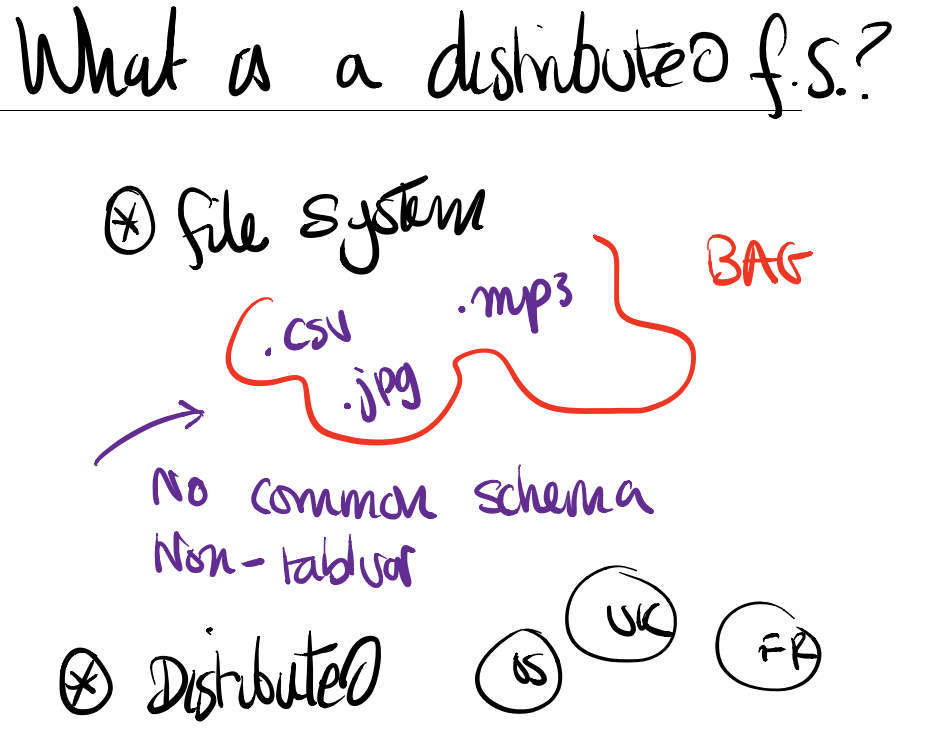 What is a distributed f.s.?
* File system
BAG
.csv
.mp3
.jpg
No common schema
Non-tabular
* Distributed
US
UK
FR